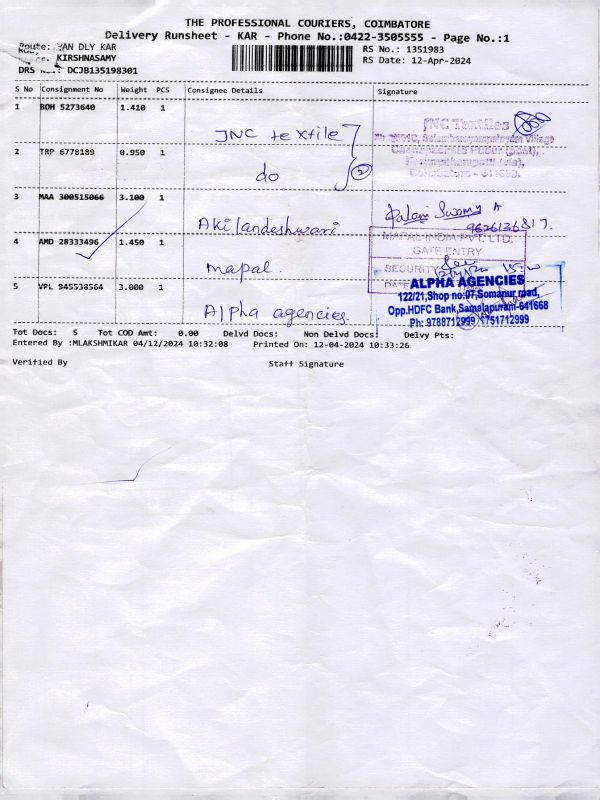 THE PROFESSIONAL COURIERS, COIMBATORE
Delivery Runsheet - KAR - Phone No.:0422-3505555 - Page No.:1
Route: VAN DLY KAR
RS No.: 1351983
KIRSHNASAMY
RS Date: 12-Apr-2024
DRS No.: DCJB135198301
S No Consignment No Weight PCS Consignee Details Signature
1 BOH 5273640 1.410 1
JNC textile
JNC Textiles
2 TRP 6778189 0.950 1
do
2
Coimbatore - 641659.
3 MAA 300515066 3.100 1
Akilandeshwari
Palani Swamy A
4 AMD 28333496 1.450 1
mapal.
MAPAL INDIA PVT. LTD.
GATE ENTRY
SECURITY
5 VPL 945538564 3.000 1
Alpha agencies.
ALPHA AGENCIES
122/21,Shop no:07,Somanur road,
Opp.HDFC Bank,Samalapuram-641668
Ph: 9788712999
Tot Docs: 5 Tot COD Amt: 0.00 Delvd Docs: Non Delvd Docs: Delvy Pts:
Entered By :MLAKSHMIKAR 04/12/2024 10:32:08 Printed On: 12-04-2024 10:33:26
Verified By Staff Signature